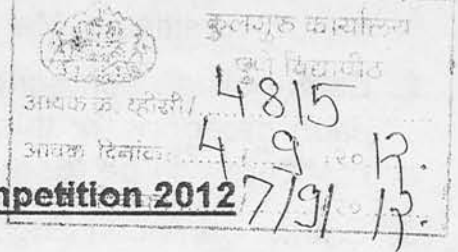 कुलगुरू कार्यालय
पुणे विद्यापीठ
आवक क्र. व्हीसी/ 4815
आवक दिनांक 4 / 9 /२० 12.
mpetition 2012 7/9/ 12.